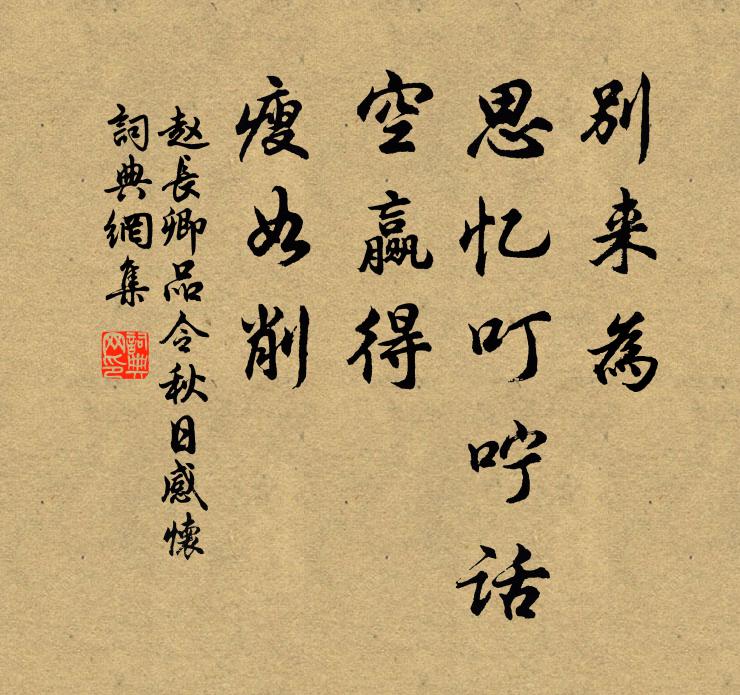 别来為
思忆叮咛话
空赢得
瘦如削
赵長卿品令秋日感懷
詞典網集
詞典网印